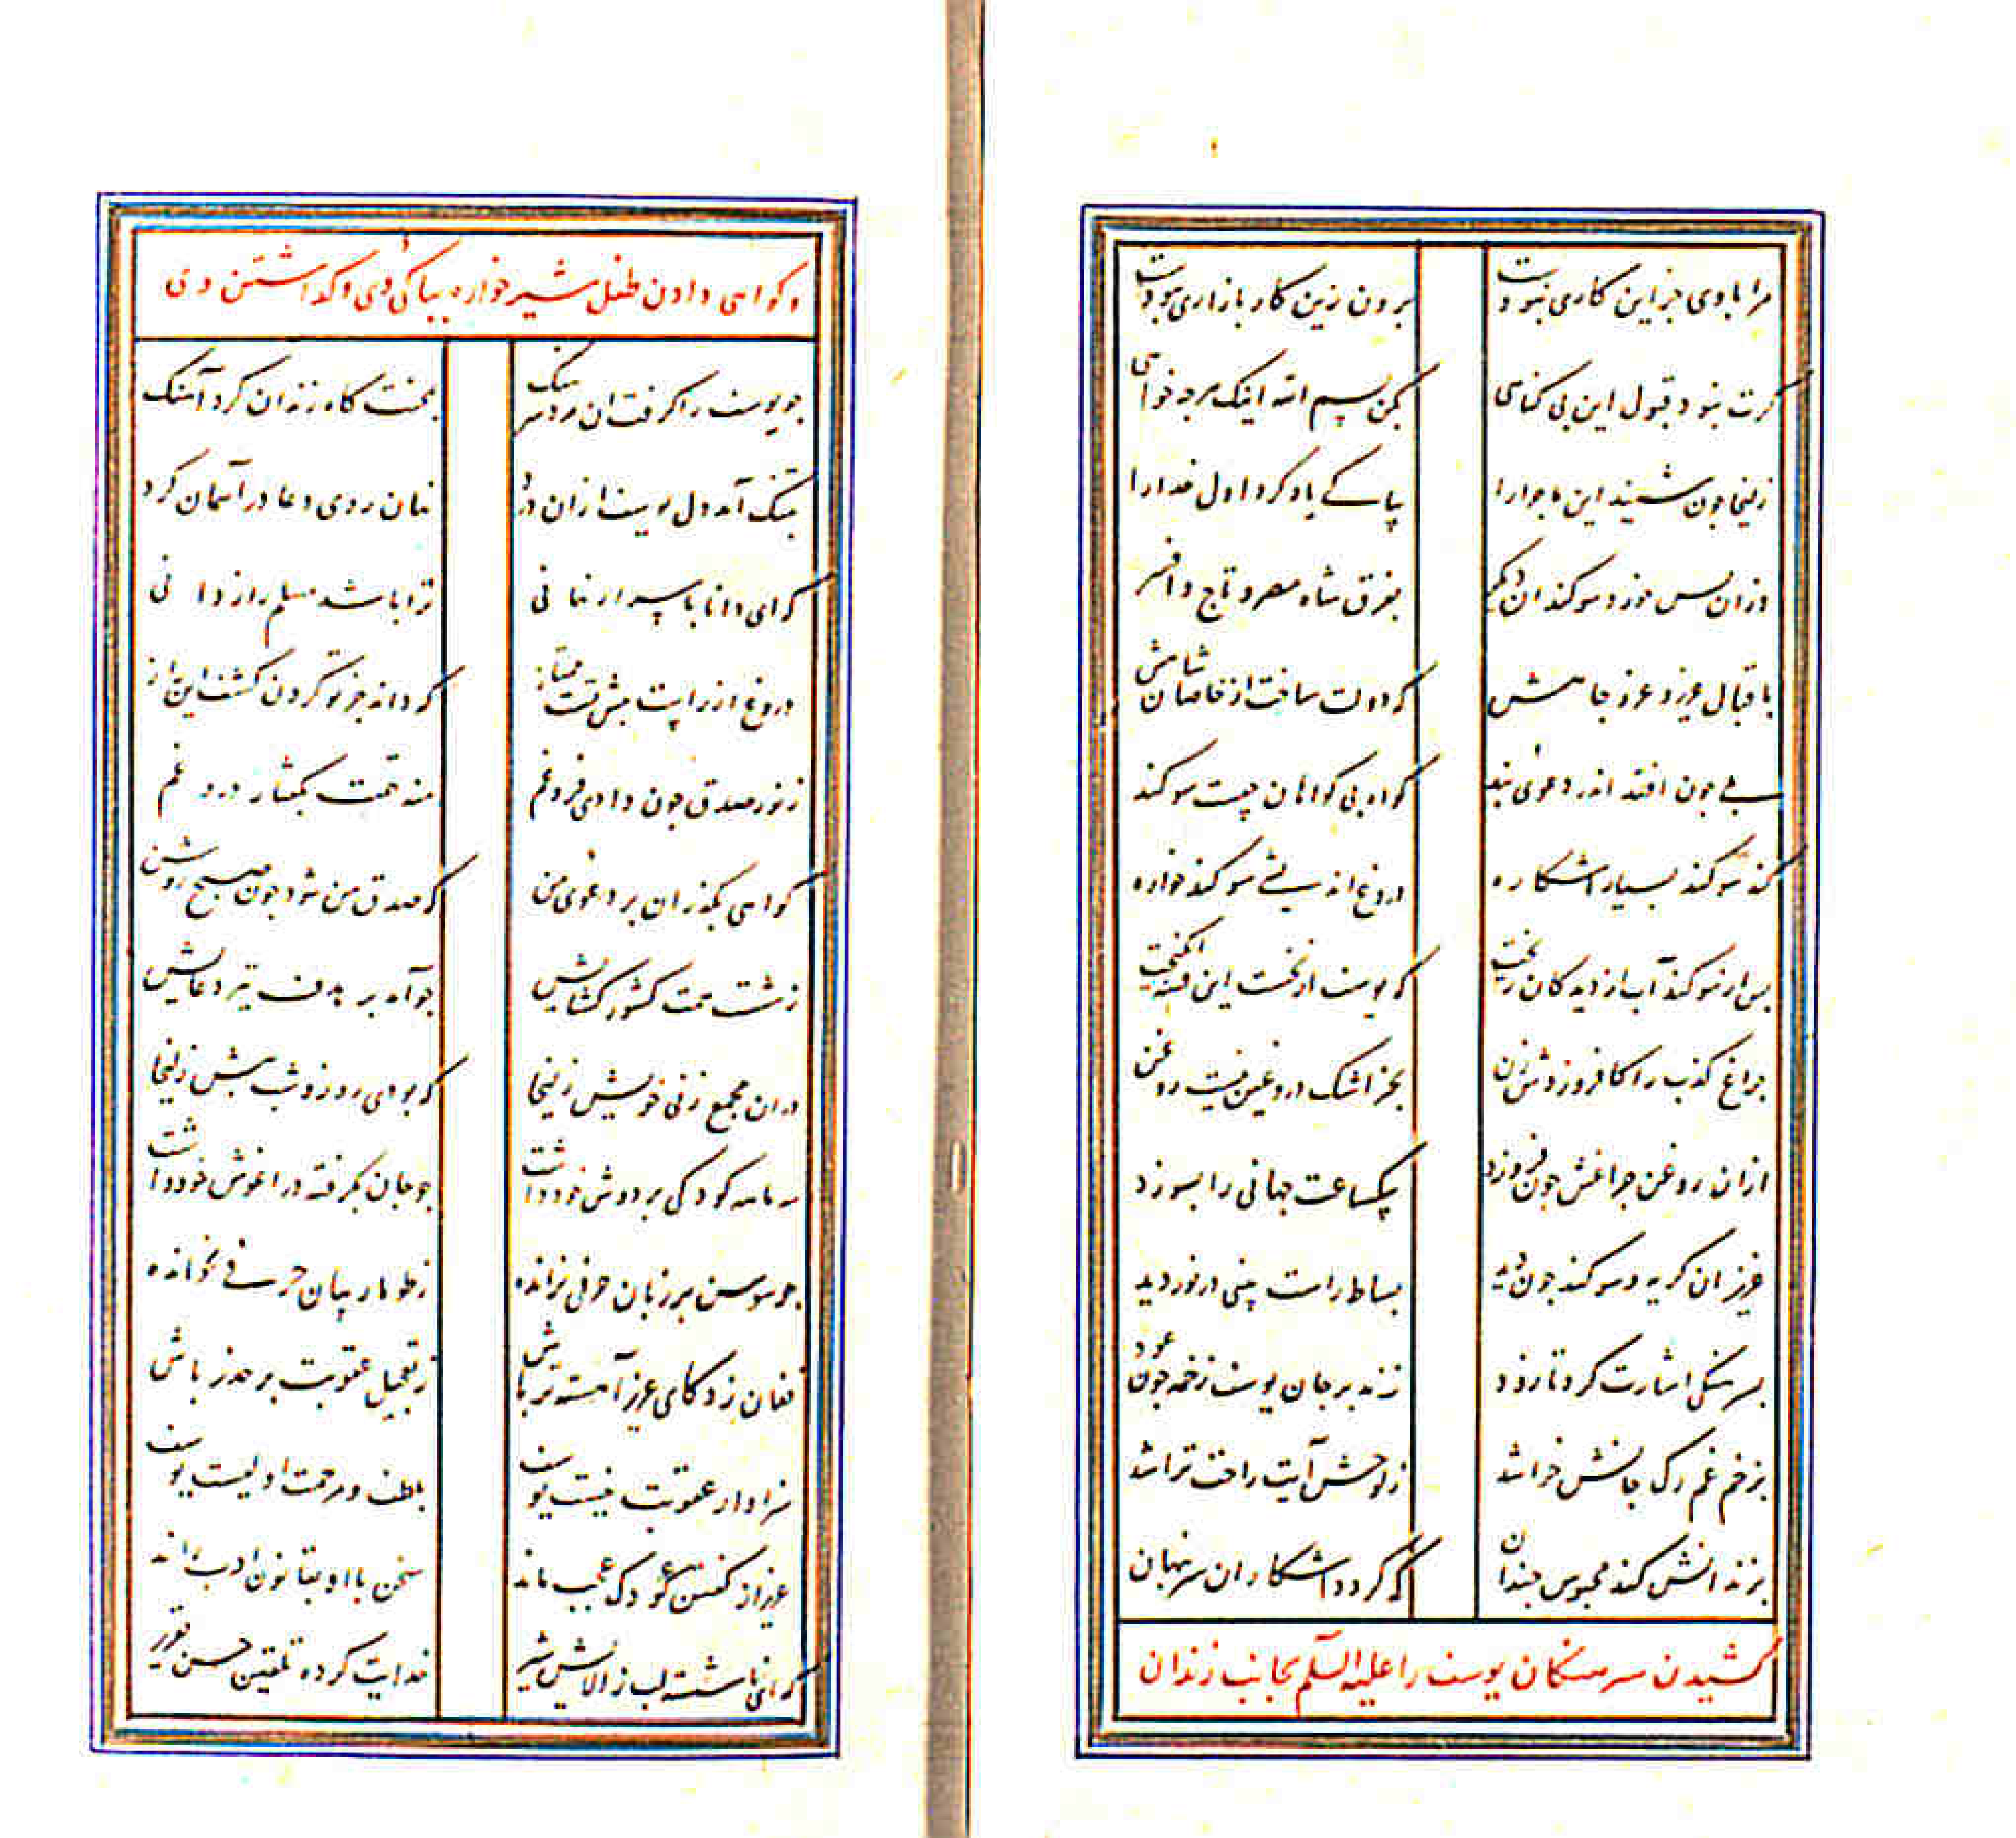 مرا با وی جز این کاری نبودست برون زین کار بازاری نبودست
کرت نبود قبول این بی کناهی بکن بسم الله اینک هرجه خواهی
زلیخا جون شنید این ماجرا را بپاکی یاد کرد اول خدا را
وزان بس خورد سوکندان دیکر بفرق شاه مصر و تاج و افسر
باقبال عزیز و عز و جاهش که دولت ساخت از خاصان شاهش
بلی جون افتد اندر دعوی بند کواه بی کواهان جیست سوکند
کند سوکند بسیار اشکاره دروغ اندیشی سوکند خواره
بس از سوکند آب از دیدکان ریخت که یوسف از نخست این فتنه انکیخت
جراغ کذب را کافروزدش زن بجز اشک دروغین نیست روغن
ازان روغن جراغش جون فروزد بیکساعت جهانی را بسوزد
عزیز ان کریه و سوکند جون دید بساط راست بینی در نوردید
بسرهنکی اشارت کرد تا زود زند بر جان یوسف زخمه جون عود
بزخم غم رک جانش خراشد ز لوحش آیت راحت تراشد
بزندانش کند محبوس جندان که کردد اشکار ان سر پنهان
کشیدن سرهنکان یوسف را علیه السلم بجانب زندان
و کواهی دادن طفل شیر خواره بپاکی وی و کذاشتن وی
جو یوسف را کرفت ان مرد سرهنک بمحنت کاه زندان کرد آهنک
بتنک آمد دل یوسف ازان درد نهان روی دعا در آسمان کرد
که ای دانا باسرار نهانی ترا باشد مسلم راز دانی
دروغ از راست بیش تست ممتاز که داند جز تو کردن کشف این راز
ز نور صدق جون دادی فروغم منه تهمت بکفتار دروغم
کواهی بکذران بر دعوی من که صدق من شود جون صبح روشن
ز شست همت کشور کشایش جو آمد بر هدف تیر دعایش
دران مجمع زنی خویش زلیخا که بودی روز و شب بیش زلیخا
سه ماهه کودکی بر دوش خود داشت جو جان بکرفته در اغوش خود داشت
جو سوسن بر زبان حرفی نرانده ز طومار بیان حرفی نخوانده
فغان زد کای عزیز آهسته تر باش ز تعجیل عقوبت بر حذر باش
سزاوار عقوبت نیست یوسف بلطف و مرحمت اولیست یوسف
عزیز از کفتن کودک عجب ماند سخن با او بقانون ادب راند
که ای ناشسته لب ز الایش شیر خدایت کرده تلقین حسن تقریر